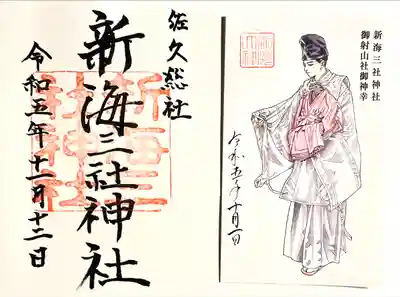 佐久總社
新海三社神社
令和五年十一月十二日
新海三社神社
御射山社御神幸
令和五年十月一日